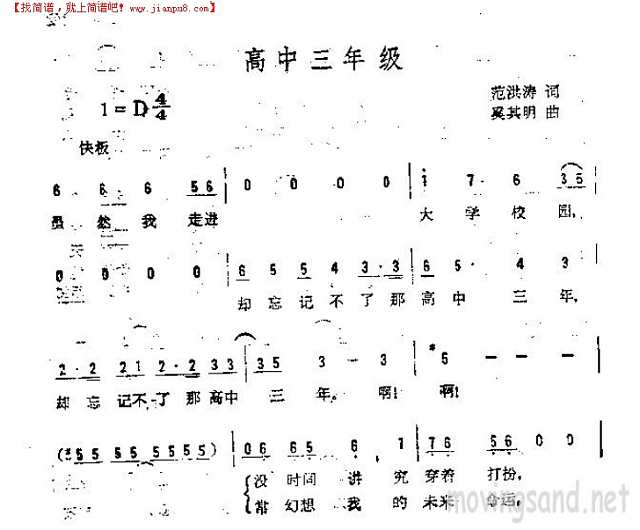 【找简谱，就上简谱吧！www.jianpu8.com】
高中三年级
1=D 4/4
范洪涛 词
奚其明 曲
快板
6 6 6 56 | 0 0 0 0 | i 7· 6 35
虽 然 我 走进 大 学 校 园，
0 0 0 0 | 6 5 5 4 3·3 | 6 5· 4 3
却 忘 记 不 了 那 高 中 三 年，
2·2 12 1 2·2 33 | 35 3 — 3 — | #5 — — —
却 忘 记不 了 那 高中 三 年。 啊！ 啊！
(#55 55 55 55) | 06 65 6 1 | 76 56 0 0
没 时间 讲 究 穿着 打扮，
常 幻想 我 的 未来 命运，
movingsand.net